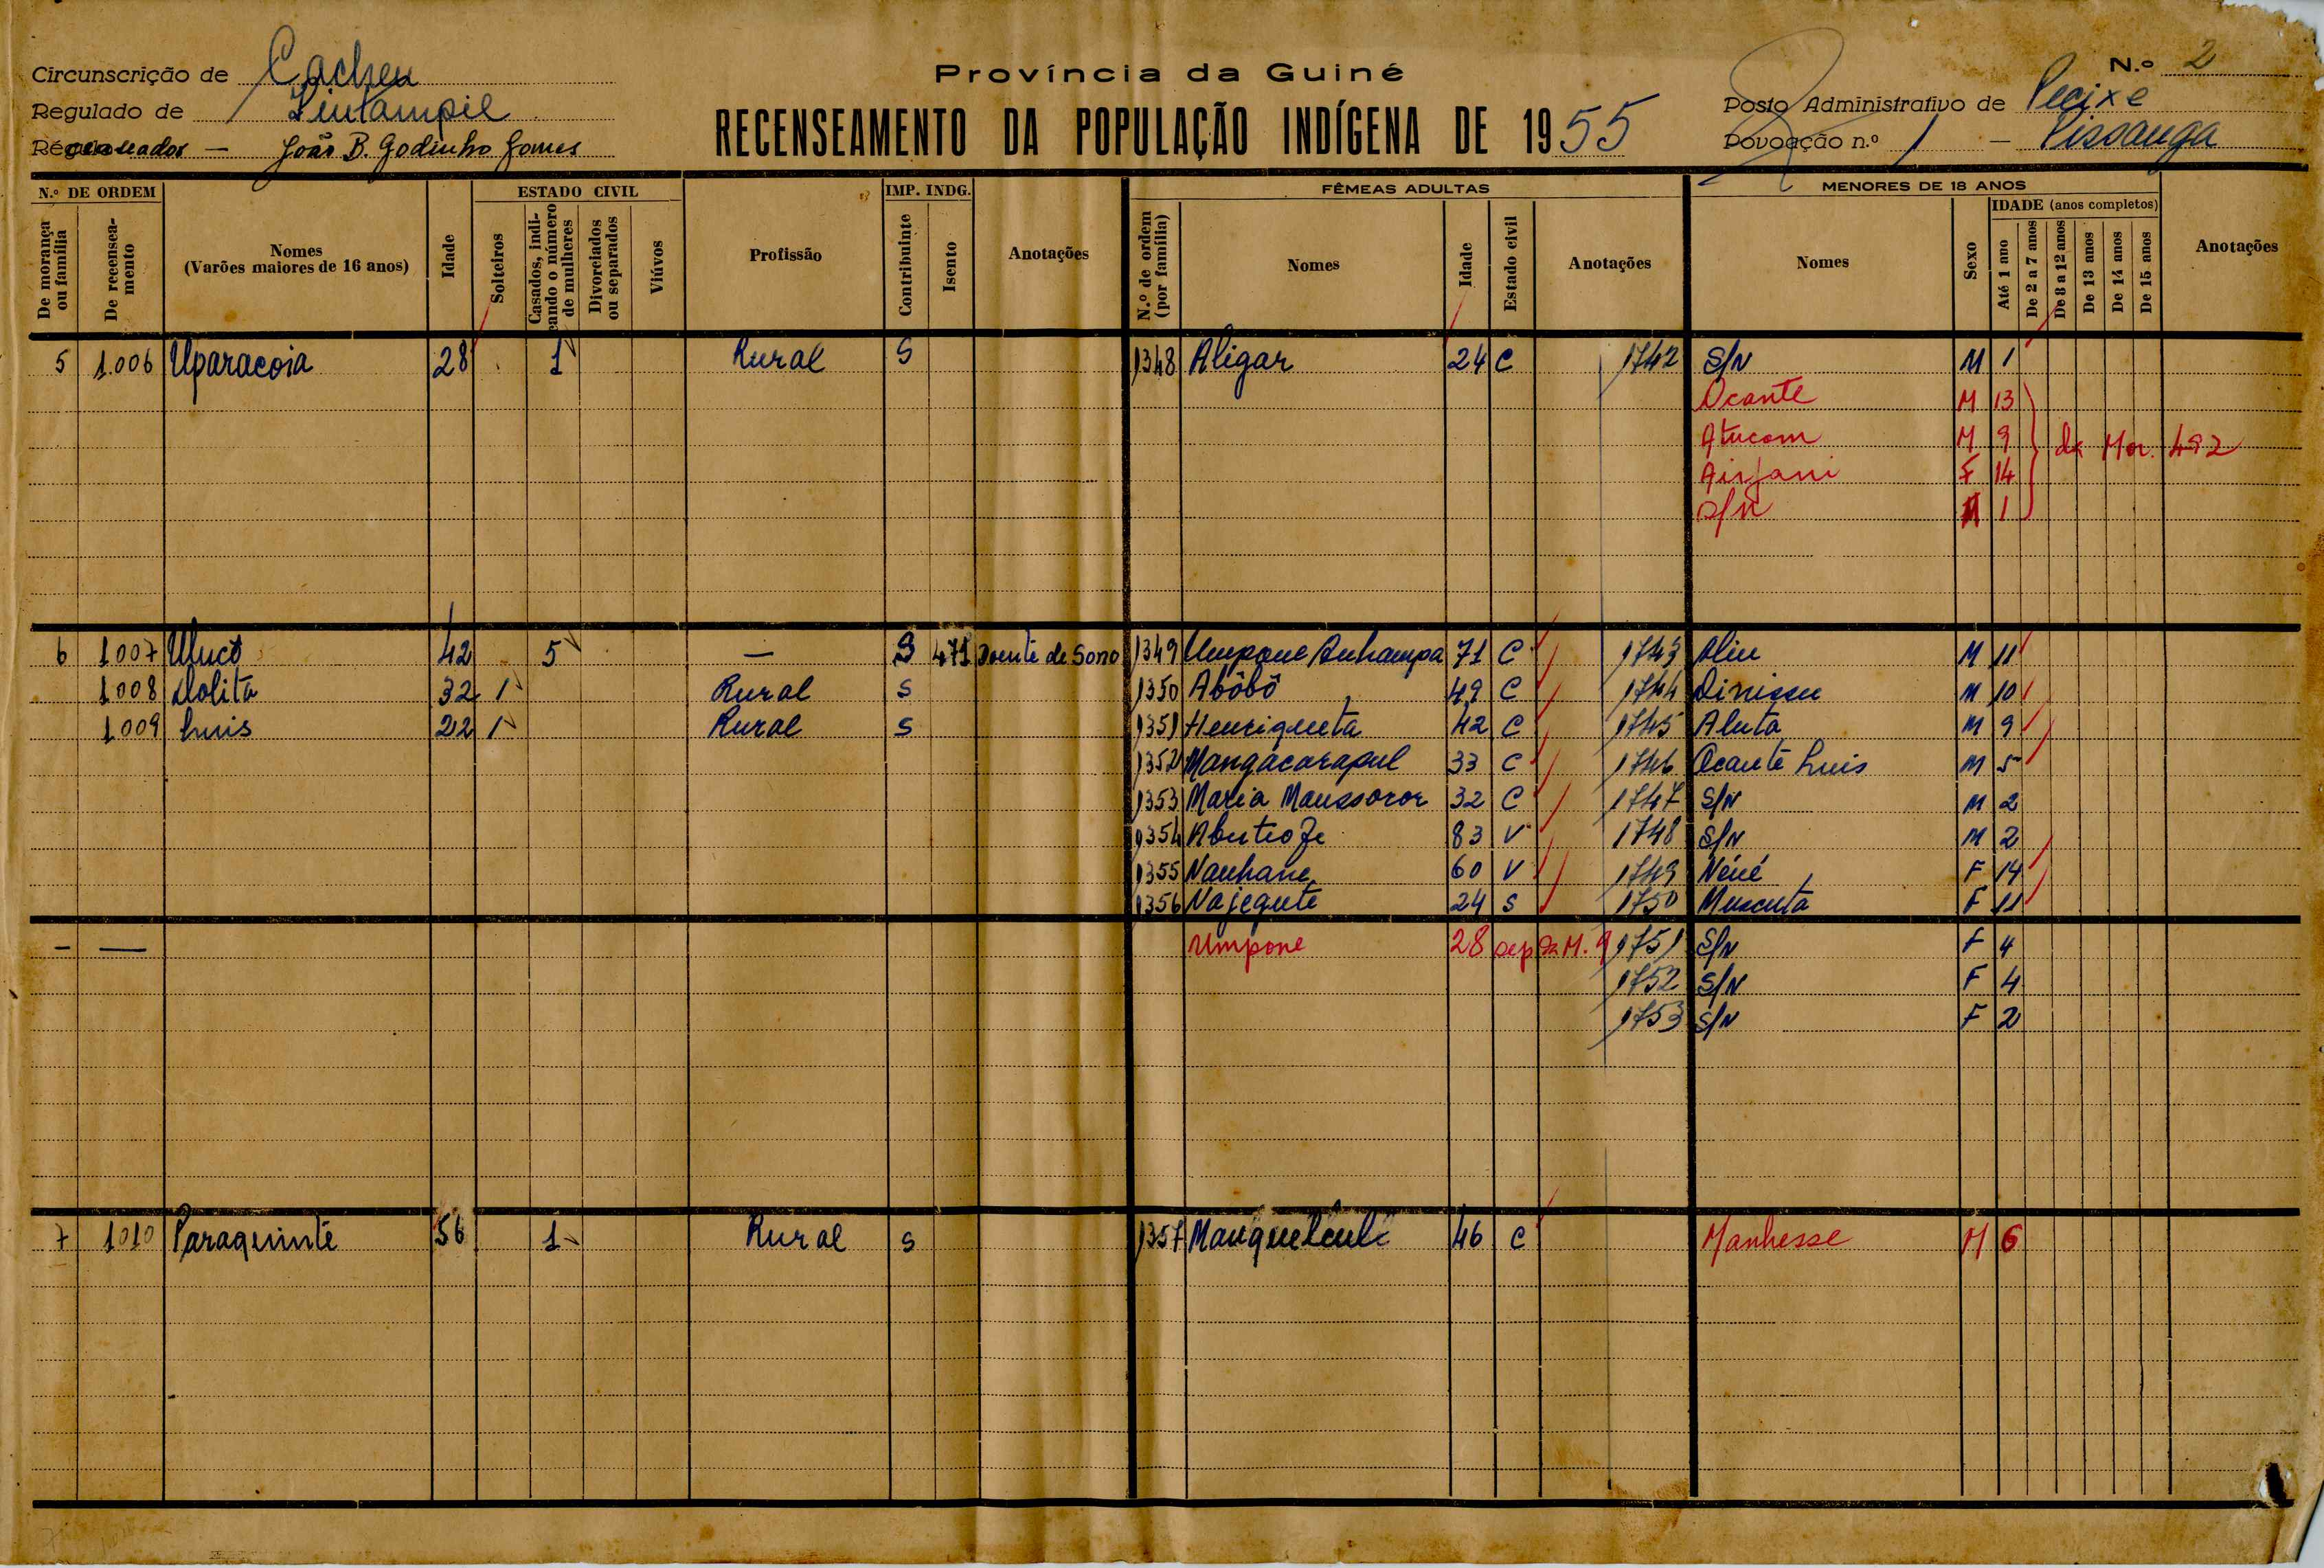 Província da Guiné
N.º 2
Circunscrição de Cacheu
Regulado de
Recenseador — João B. Godinho Gomes
RECENSEAMENTO DA POPULAÇÃO INDÍGENA DE 1955
Posto Administrativo de Pecixe
Povoação n.º 1 —
N.º DE ORDEM
De morança ou família
De recenseamento
Nomes
(Varões maiores de 16 anos)
Idade
ESTADO CIVIL
Solteiros
Casados, indicando o número de mulheres
Divorciados ou separados
Viúvos
Profissão
IMP. INDG.
Contribuinte
Isento
Anotações
FÊMEAS ADULTAS
N.º de ordem (por família)
Nomes
Idade
Estado civil
Anotações
MENORES DE 18 ANOS
Nomes
Sexo
IDADE (anos completos)
Até 1 ano
De 2 a 7 anos
De 8 a 12 anos
De 13 anos
De 14 anos
De 15 anos
Anotações
5 1.006 Uparacoia 28 1 Rural S 1348 Aligar 24 C 1742 S/N M 1
Ocante M 13
Atucom M 9 da Mor. 492
F 14
S/N M 1
6 1007 42 5 — S 471 Doente de Sono 1349 71 C 1743 Aliu M 11
1008 Dolita 32 1 Rural S 1350 Abôbô 49 C 1744 Dinissu M 10
1009 Luis 22 1 Rural S 1351 Henriqueta 42 C 1745 Aluta M 9
1352 Mangacarapul 33 C 1746 Ocante Luis M 5
1353 Maria Maussoror 32 C 1747 S/N M 2
1354 83 V 1748 S/N M 2
1355 Nanhane 60 V 1749 Néné F 14
1356 Najegute 24 S 1750 Muscuta F 11
— — Umpone 28 sep da M. 9 1751 S/N F 4
1752 S/N F 4
1753 S/N F 2
7 1010 Paraquinte 56 1 Rural S 1357 46 C Manhesse M 6